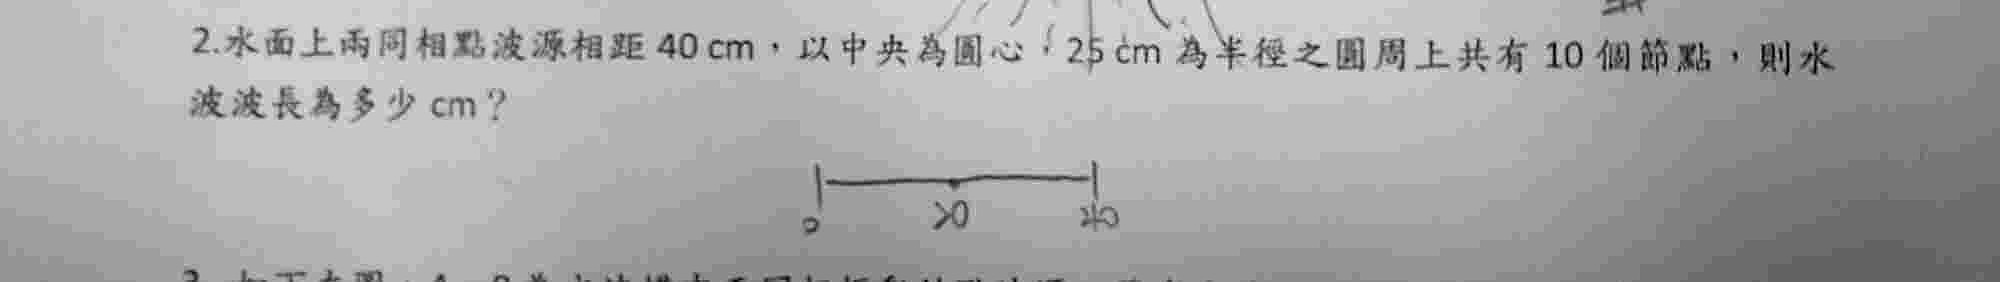 2.水面上兩同相點波源相距 40 cm，以中央為圓心，25 cm 為半徑之圓周上共有 10 個節點，則水
波波長為多少 cm？
0 20 40